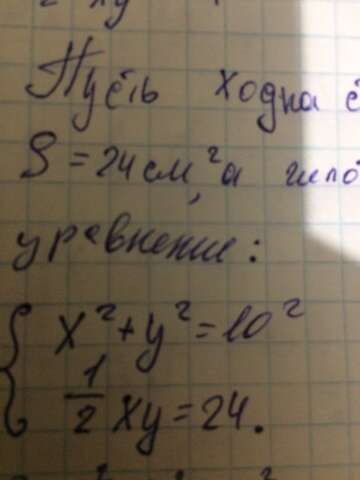 Пусть x одна
S = 24 см², а гипо
уравнение:
x² + y² = 10²
1/2 xy = 24.